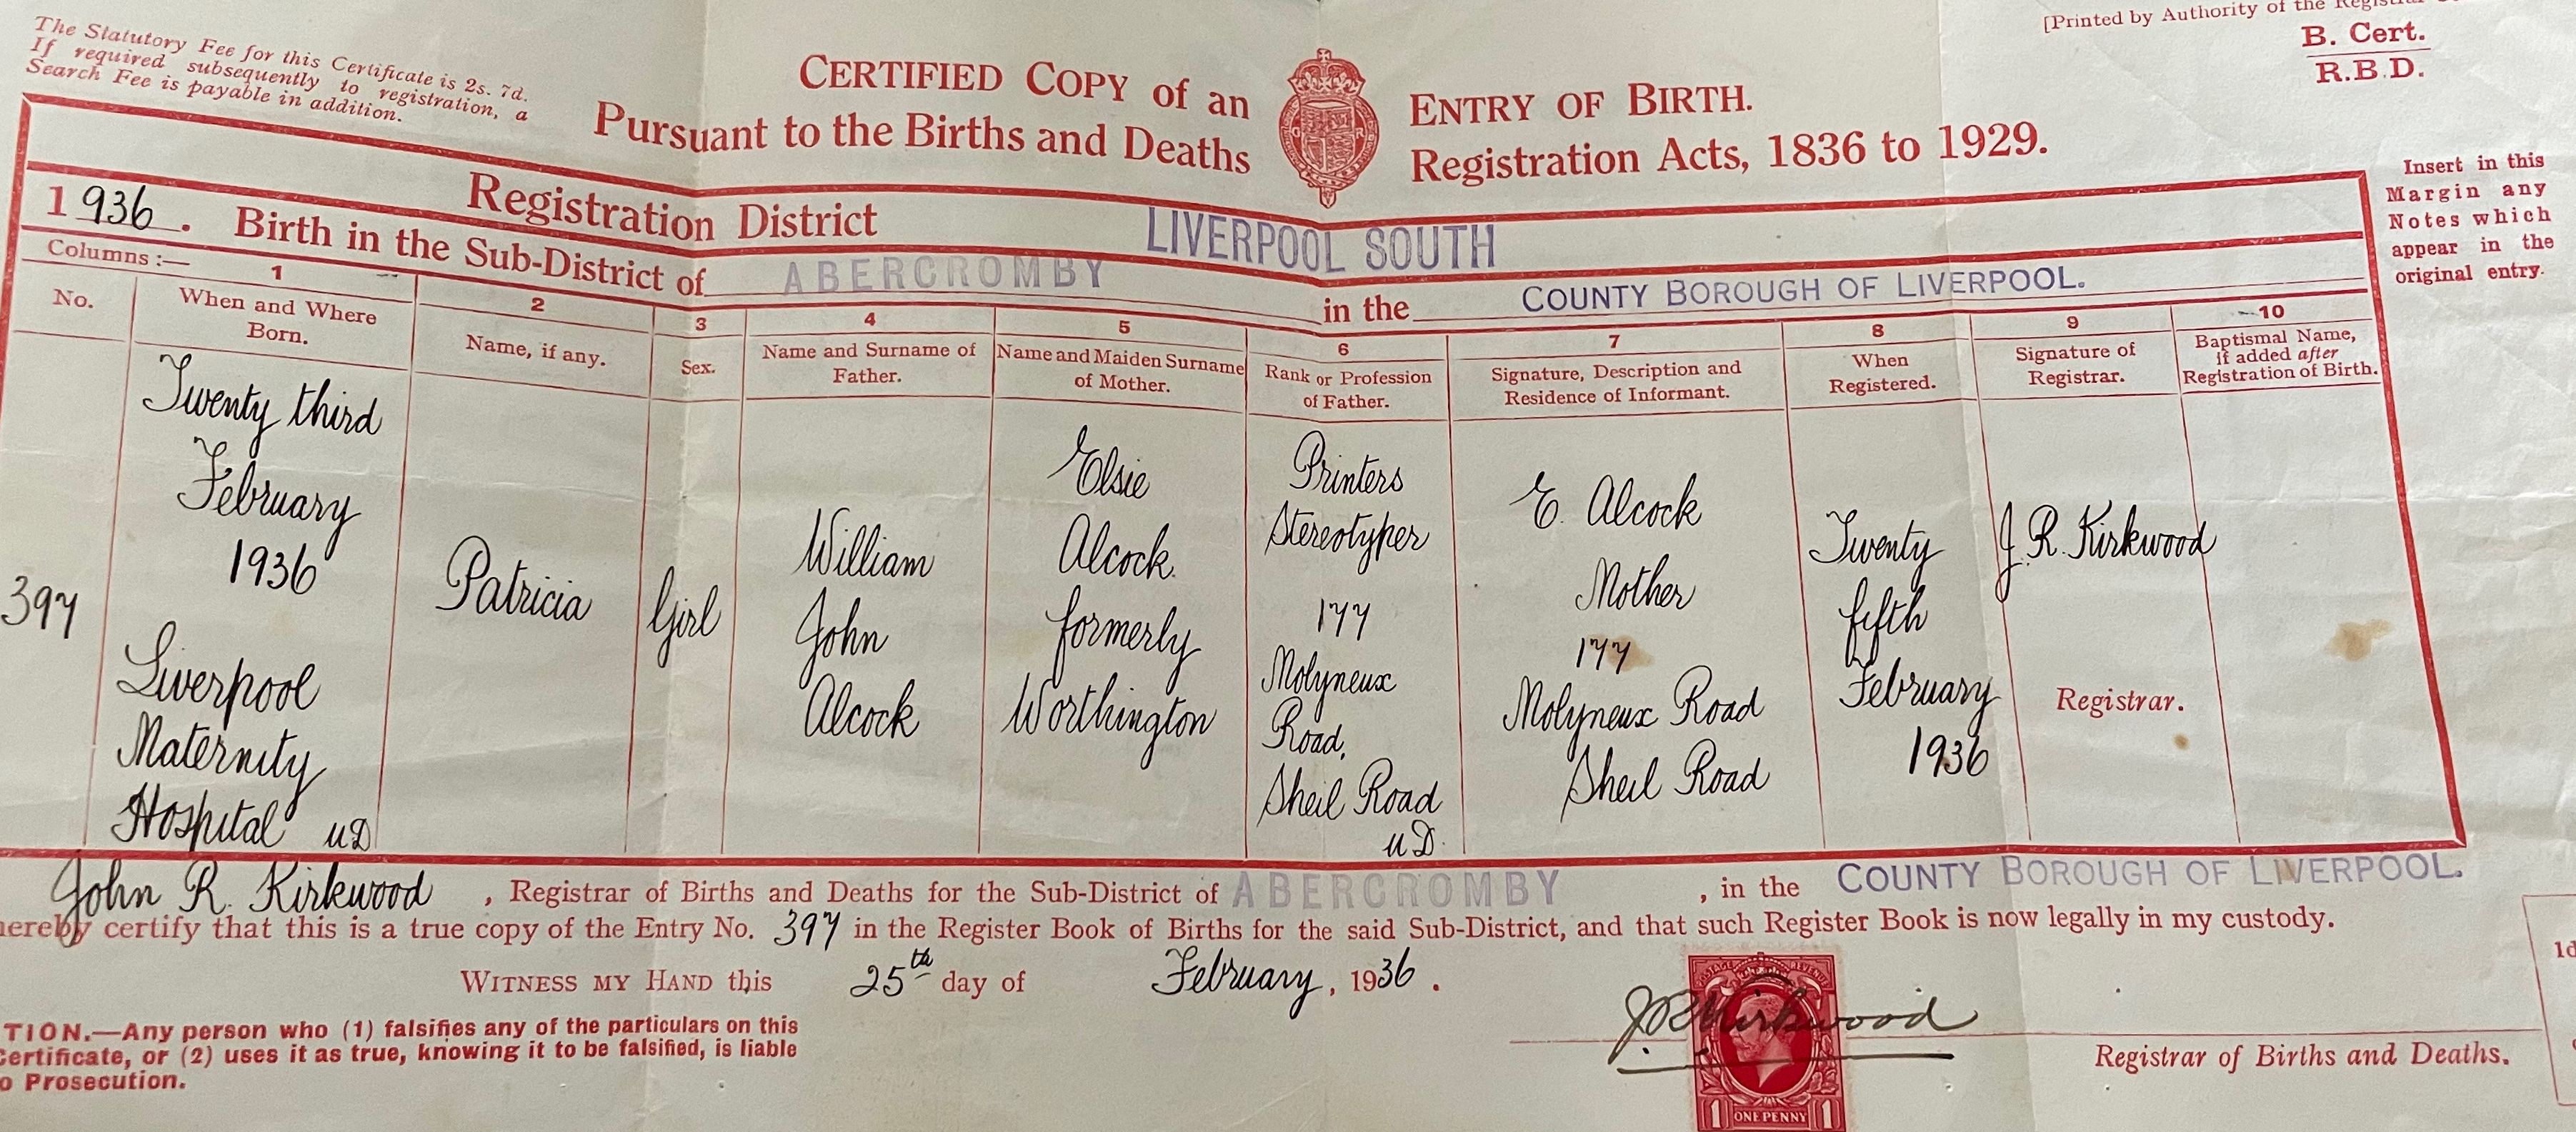 The Statutory Fee for this Certificate is 2s. 7d.
If required subsequently to registration, a
Search Fee is payable in addition.
[Printed by Authority of the
B. Cert.
R.B.D.
CERTIFIED COPY of an ENTRY OF BIRTH.
Pursuant to the Births and Deaths Registration Acts, 1836 to 1929.
Insert in this
Margin any
Notes which
appear in the
original entry.
Registration District LIVERPOOL SOUTH
1936. Birth in the Sub-District of ABERCROMBY in the COUNTY BOROUGH OF LIVERPOOL.
Columns :— 1 2 3 4 5 6 7 8 9 10
No.
When and Where
Born.
Name, if any.
Sex.
Name and Surname of
Father.
Name and Maiden Surname
of Mother.
Rank or Profession
of Father.
Signature, Description and
Residence of Informant.
When
Registered.
Signature of
Registrar.
Baptismal Name,
if added after
Registration of Birth.
397
Twenty third
February
1936
Liverpool
Maternity
Hospital UD
Patricia
Girl
William
John
Alcock
Elsie
Alcock
formerly
Worthington
Printers
Stereotyper
177
Molyneux
Road,
Sheil Road
UD.
E. Alcock
Mother
177
Molyneux Road
Sheil Road
Twenty
fifth
February
1936
J. R. Kirkwood
Registrar.
John R. Kirkwood, Registrar of Births and Deaths for the Sub-District of ABERCROMBY, in the COUNTY BOROUGH OF LIVERPOOL.
hereby certify that this is a true copy of the Entry No. 397 in the Register Book of Births for the said Sub-District, and that such Register Book is now legally in my custody.
WITNESS MY HAND this 25th day of February, 1936.
TION.—Any person who (1) falsifies any of the particulars on this
Certificate, or (2) uses it as true, knowing it to be falsified, is liable
o Prosecution.
J R Kirkwood
Registrar of Births and Deaths.
POSTAGE REVENUE
1 ONE PENNY 1
1d